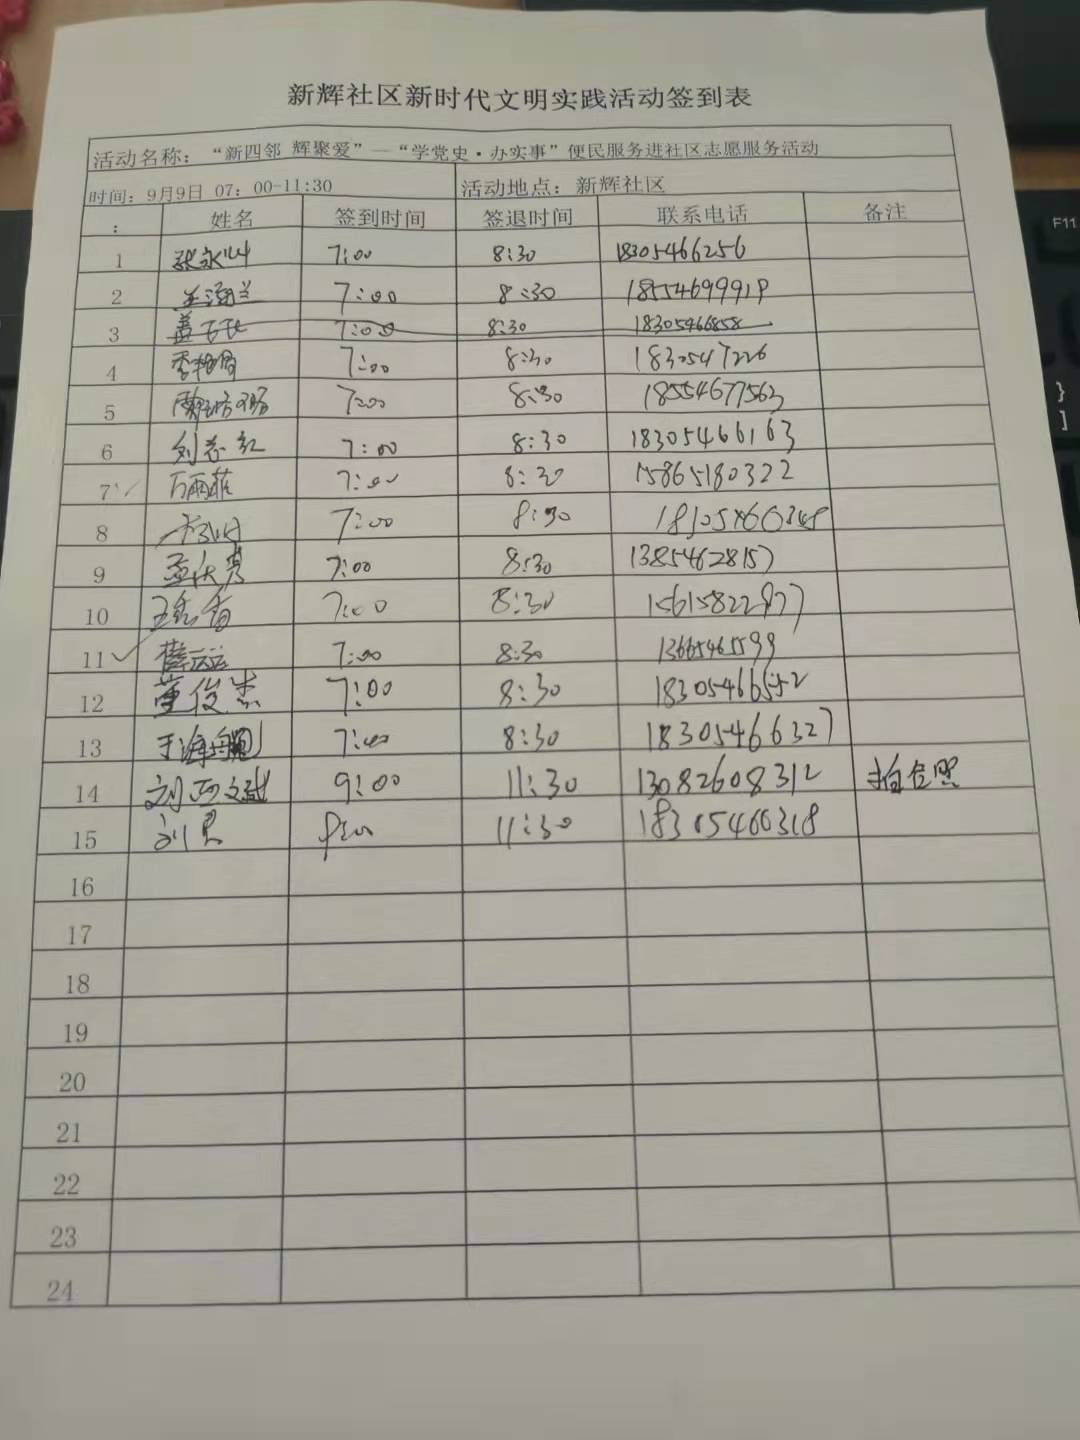 新辉社区新时代文明实践活动签到表
活动名称：“新四邻 辉聚爱”—“学党史·办实事”便民服务进社区志愿服务活动
时间：9月9日 07：00-11:30 活动地点：新辉社区
： 姓名 签到时间 签退时间 联系电话 备注
1 7:00 8:30 18305466256
2 7:00 8:30 18554699919
3 7:00 8:30 18305466858
4 7:00 8:30 1830547226
5 7:00 8:30 18554677563
6 刘志红 7:00 8:30 18305466163
7 万雨菲 7:00 8:30 15865180322
8 7:00 8:30
9 7:00 8:30 13854628157
10 7:00 8:30 15615822977
11 薛云云 7:00 8:30
12 董俊杰 7:00 8:30
13 7:00 8:30 18305466327
14 9:00 11:30 13082608312 拍合照
15 9:00 11:30
16
17
18
19
20
21
22
23
24